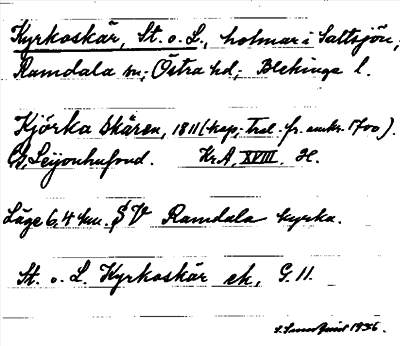 Kyrkoskär, St. o. L., holmar i Saltsjön,
Ramdala sn; Östra hd; Blekinge l.
Kjörka Skären, 1811 (kop. trol. fr. omkr. 1700).
G. Leijonhufvud. Kr.A, XVIII. H.
Läge 6,4 km. SV Ramdala kyrka.
St. o. L. Kyrkoskär ek, G. 11.
1936.